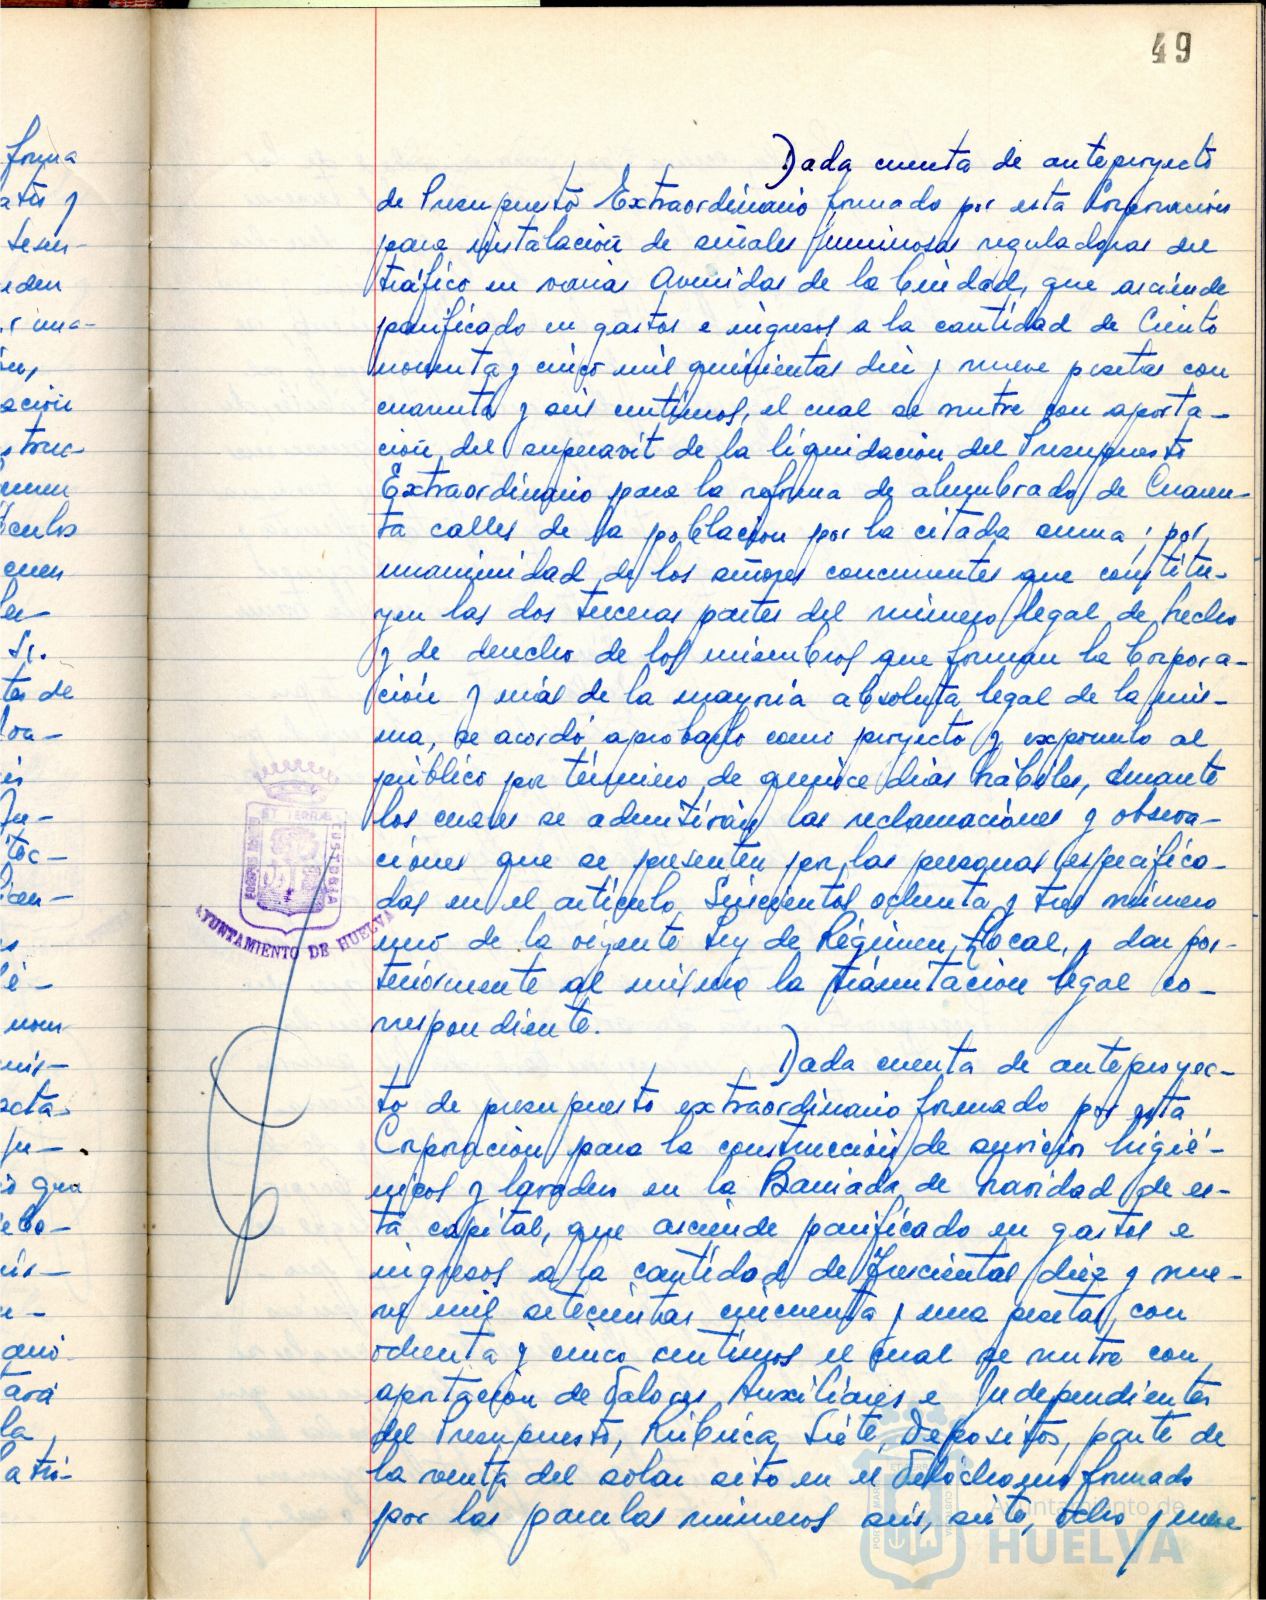 49
Dada cuenta de anteproyecto
de Presupuesto Extraordinario formado por esta Corporación
para instalación de señales luminosas reguladoras del
tráfico en varias Avenidas de la Ciudad, que asciende
panificado en gastos e ingresos a la cantidad de Ciento
noventa y cinco mil quinientas diez y nueve pesetas con
cuarenta y seis centimos, el cual se nutre con aporta-
ción del superavit de la liquidación del Presupuesto
Extraordinario para la reforma de alumbrado de Cuaren-
ta calles de la población por la citada suma; por
unanimidad de los señores concurrentes que constitu-
yen las dos terceras partes del número legal de hecho
y de derecho de los miembros que forman la Corpora-
ción y más de la mayoria absoluta legal de la mis-
ma, se acordó aprobarlo como proyecto y exponerlo al
público por término de quince dias hábiles, durante
los cuales se admitirán las reclamaciones y observa-
ciones que se presenten por las personas especifica-
das en el articulo Seiscientos ochenta y tres número
uno de la vigente Ley de Régimen Local, y dar pos-
teriormente al mismo la tramitación legal co-
rrespondiente.
Dada cuenta de anteproyec-
to de presupuesto extraordinario formado por esta
Corporación para la construcción de servicios higié-
nicos y lavaderos en la Barriada de Navidad de es-
ta capital, que asciende panificado en gastos e
ingresos a la cantidad de Trescientas diez y nue-
ve mil setecientas cincuenta y una pesetas con
ochenta y cinco centimos el cual se nutre con
aportación de Valores Auxiliares e Independientes
del Presupuesto, Rúbrica Siete, Depositos, parte de
la venta del solar sito en el Velódromo formado
por las parcelas números seis, siete, ocho y nueve
forma
eden
ación
tes de
AYUNTAMIENTO DE HUELVA
Ayuntamiento de
HUELVA